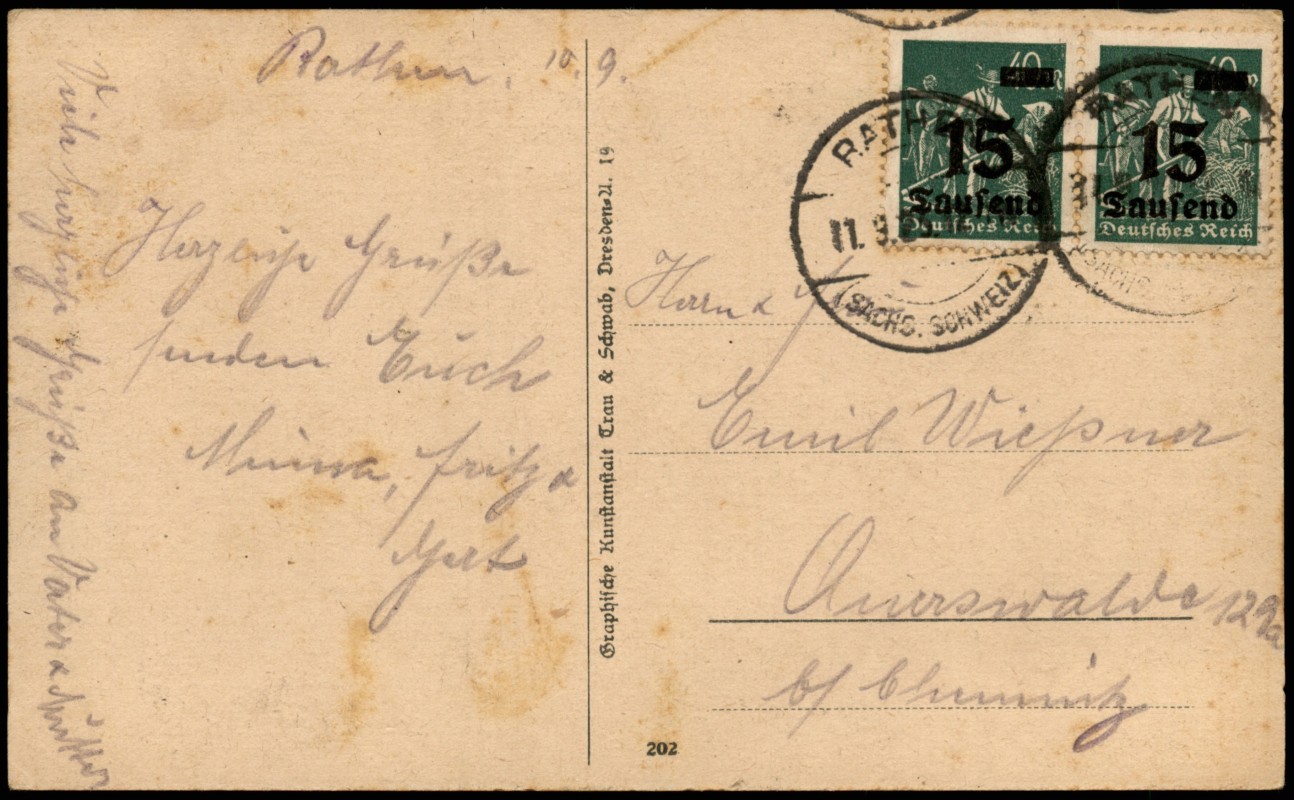 Rathen. 10. 9.
Herzliche Grüße
senden Euch
Minna, Fritz &
Gert
Viele herzliche Grüße an Vater & Mutter
Graphische Kunstanstalt Trau & Schwab, Dresden-A. 19
202
40
15
Tausend
Deutsches Reich
40
15
Tausend
Deutsches Reich
RATHEN
11. 9.
(SÄCHS. SCHWEIZ)
RATHEN
Herrn &
Emil Wießner
Auerswalde
b/ Chemnitz